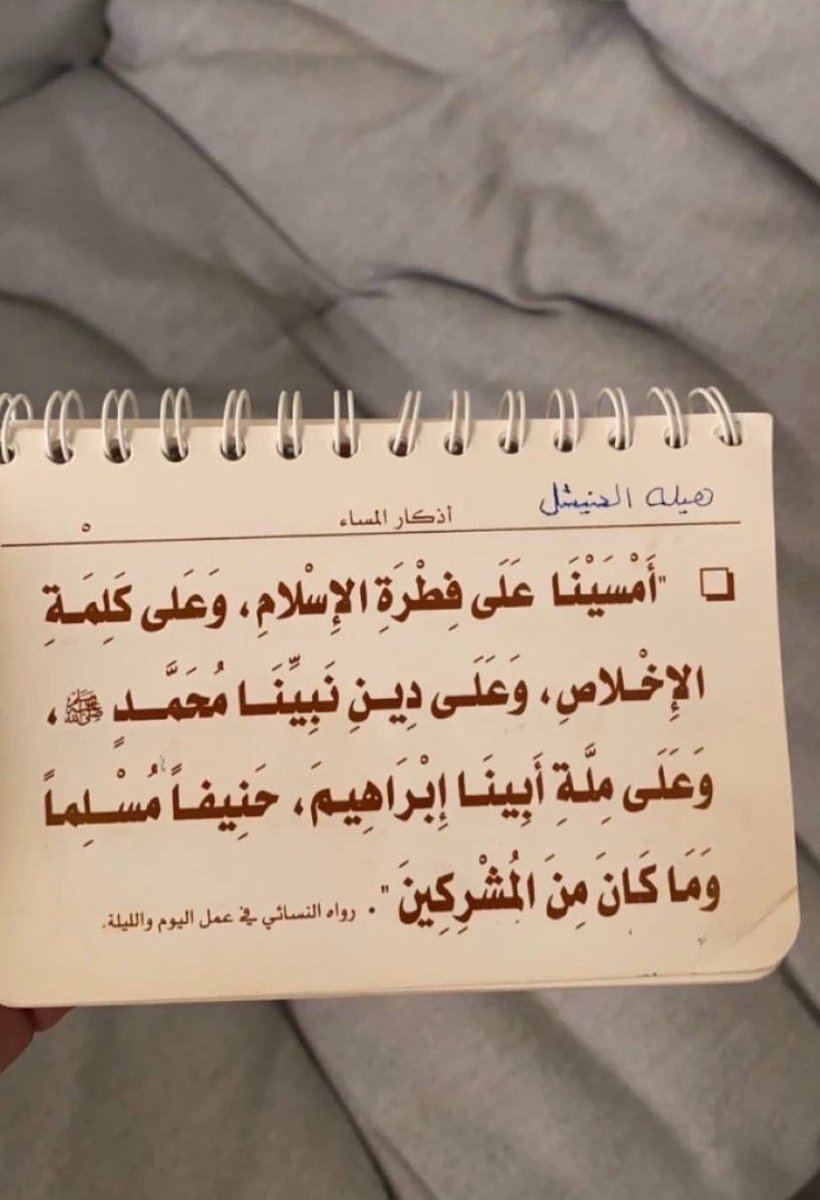 هيله الحنيشل
أذكار المساء
٥
"أَمْسَيْنَا عَلَى فِطْرَةِ الإِسْلامِ، وَعَلَى كَلِمَـةِ
الإِخْـلاصِ، وَعَلَـى دِيـنِ نَبِيِّنَـا مُحَمَّـدٍ ﷺ،
وَعَلَى مِلَّةِ أَبِينَـا إِبْرَاهِيمَ، حَنِيفـاً مُسْـلِماً
وَمَا كَانَ مِنَ الْمُشْرِكِينَ". رواه النسائي في عمل اليوم والليلة.